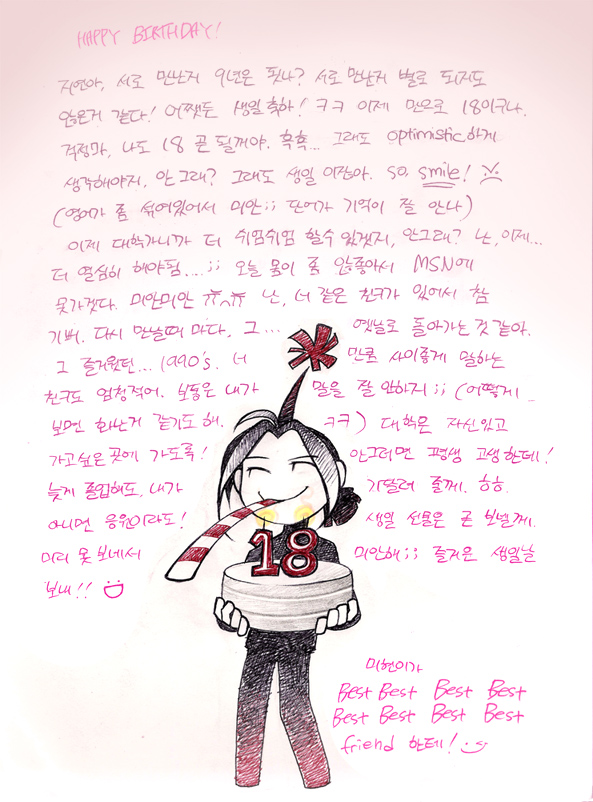 HAPPY BIRTHDAY!
지연아, 서로 만난지 9년은 됏나? 서로 만난지 별로 되지도
않은거 같다! 어쨋든 생일 축하! ㅋㅋ 이제 만으로 18이구나.
걱정마, 나도 18 곧 될꺼야. 흑흑... 그래도 optimistic하게
생각해야지, 안 그래? 그래도 생일 이잖아. So, smile!
(영어가 좀 섞여있어서 미안;; 단어가 기억이 잘 안나)
이제 대학가니까 더 쉬엄쉬엄 할수 있겠지, 안그래? 난, 이제...
더 열심히 해야됨....;; 오늘 몸이 좀 않좋아서 MSN에
못가겠다. 미안미안 ㅠ_ㅠ 난, 너 같은 친구가 있어서 참
기뻐. 다시 만날때 마다, 그... 옛날로 돌아가는 것 같아.
그 즐거웠던... 1990's. 너 만큼 사이좋게 말하는
친구도 엄청적어. 보통은 내가 말을 잘 안하지;; (어떻게
보면 화난거 같기도 해. ㅋㅋ) 대학은 자신있고
가고싶은 곳에 가도록! 안그러면 평생 고생한데!
늦게 졸업해도, 내가 기달려 줄께. ㅎㅎ.
아니면 응원이라도! 생일 선물은 곧 보낼께.
미리 못보네서 미안해;; 즐거운 생일날
보내!! :D
18
미현이가
Best Best Best Best
Best Best Best Best
friend 한테! :)